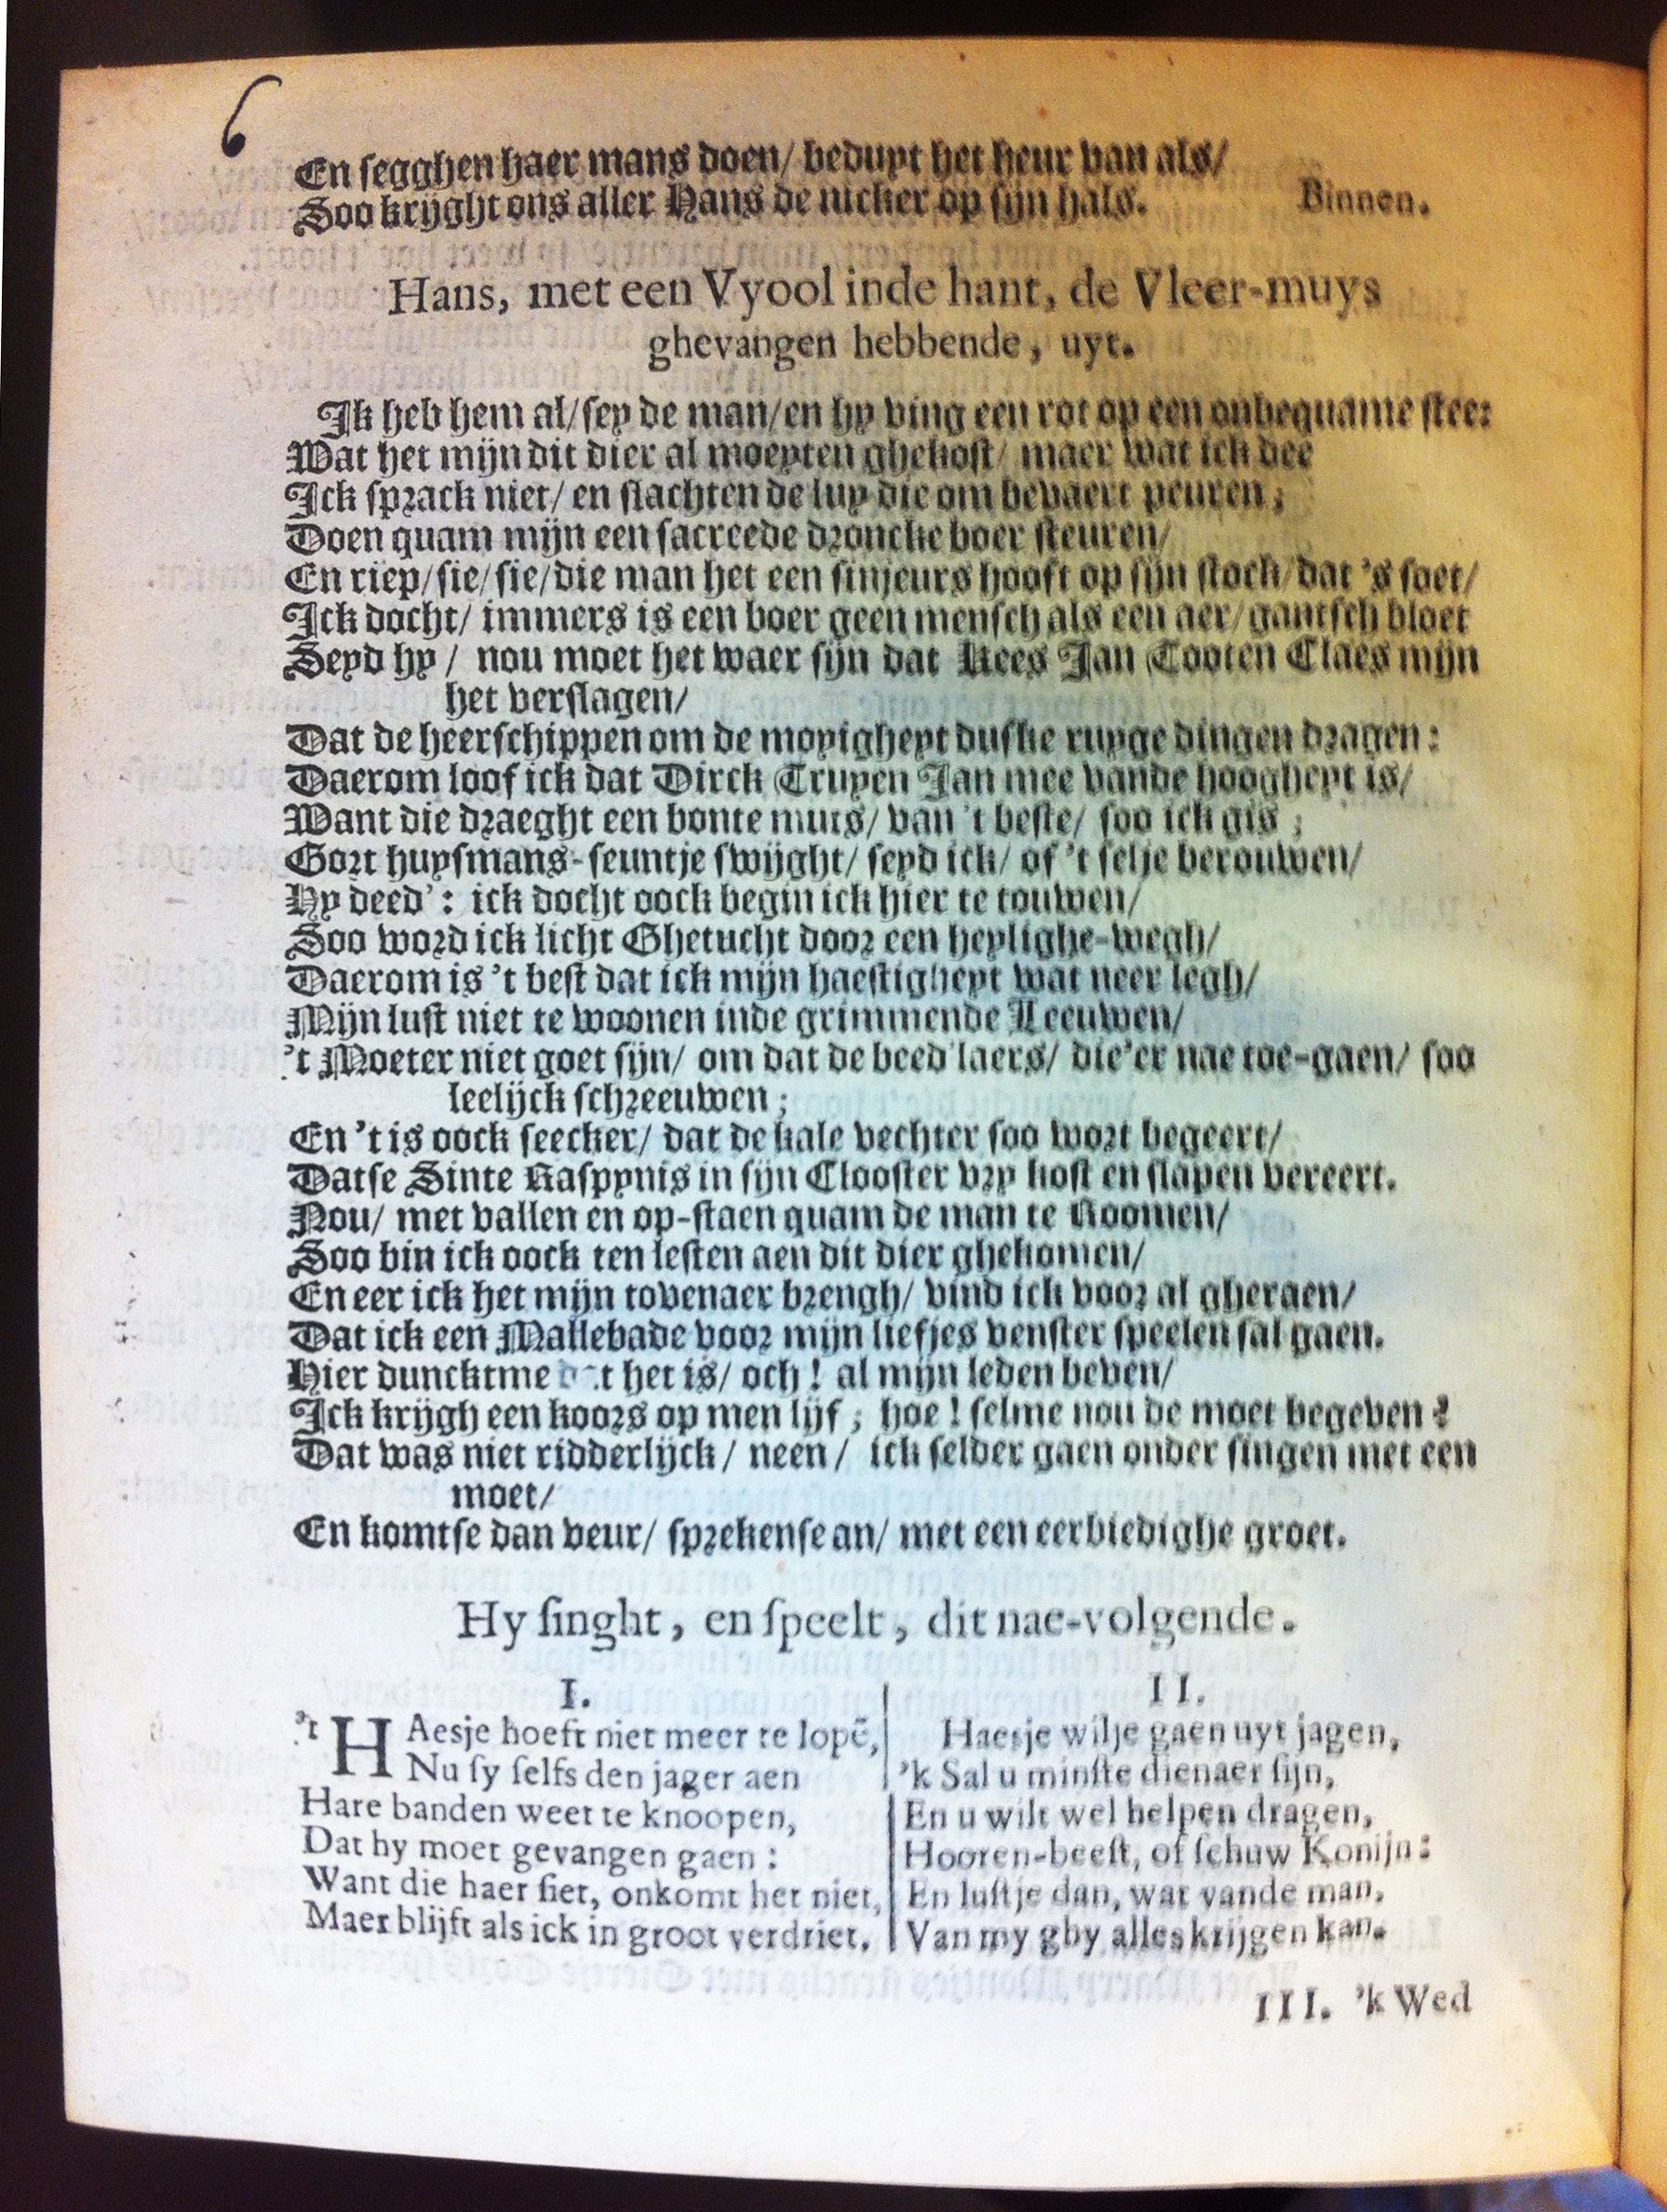 6
En segghen haer mans doen/ beduyt het heur van als/
Soo krijght ons aller Hans de nicker op sijn hals. Binnen.
Hans, met een Vyool inde hant, de Vleer-muys
ghevangen hebbende, uyt.
Ik heb hem al/ sey de man/ en hy ving een rot op een onbequame stee:
Wat het mijn dit dier al moeyten ghekost/ maer wat ick dee
Ick sprack niet/ en slachten de luy die om bevaert peuren;
Doen quam mijn een sacreede droncke boer steuren/
En riep/ sie/ sie/ die man het een sinjeurs hooft op sijn stock/ dat 's soet/
Ick docht/ immers is een boer geen mensch als een aer/ gantsch bloet
Seyd hy/ nou moet het waer sijn dat Kees Jan Cooten Claes mijn
het verslagen/
Dat de heerschippen om de moyigheyt duske ruyge dingen dragen:
Daerom loof ick dat Dirck Truyen Jan mee vande hoogheyt is/
Want die draeght een bonte muts/ van 't beste/ soo ick gis;
Gort huysmans-seuntje swijght/ seyd ick/ of 't selje berouwen/
Hy deed': ick docht oock begin ick hier te touwen/
Soo word ick licht Ghetucht door een heylighe-wegh/
Daerom is 't best dat ick mijn haestigheyt wat neer legh/
Mijn lust niet te woonen inde grimmende Leeuwen/
't Moeter niet goet sijn/ om dat de beed'laers/ die'er nae toe-gaen/ soo
leelijck schreeuwen;
En 't is oock seecker/ dat de kale vechter soo wort begeert/
Datse Sinte Raspynis in sijn Clooster vry kost en slapen vereert.
Nou/ met vallen en op-staen quam de man te Roomen/
Soo bin ick oock ten lesten aen dit dier ghekomen/
En eer ick het mijn tovenaer brengh/ vind ick voor al gheraen/
Dat ick een Mallebade voor mijn liefjes venster speelen sal gaen.
Hier dunckt me dat het is/ och! al mijn leden beven/
Ick krijgh een koors op men lijf; hoe! selme nou de moet begeven?
Dat was niet ridderlijck/ neen/ ick selder gaen onder singen met een
moet/
En komtse dan veur/ sprekense an/ met een eerbiedighe groet.
Hy singht, en speelt, dit nae-volgende.
I.
't HAesje hoeft niet meer te lopē,
Nu sy selfs den jager aen
Hare banden weet te knoopen,
Dat hy moet gevangen gaen:
Want die haer siet, onkomt het niet,
Maer blijft als ick in groot verdriet.
II.
Haesje wilje gaen uyt jagen,
'k Sal u minste dienaer sijn,
En u wilt wel helpen dragen,
Hooren-beest, of schuw Konijn:
En lustje dan, wat vande man,
Van my ghy alles krijgen kan.
III. 'k Wed